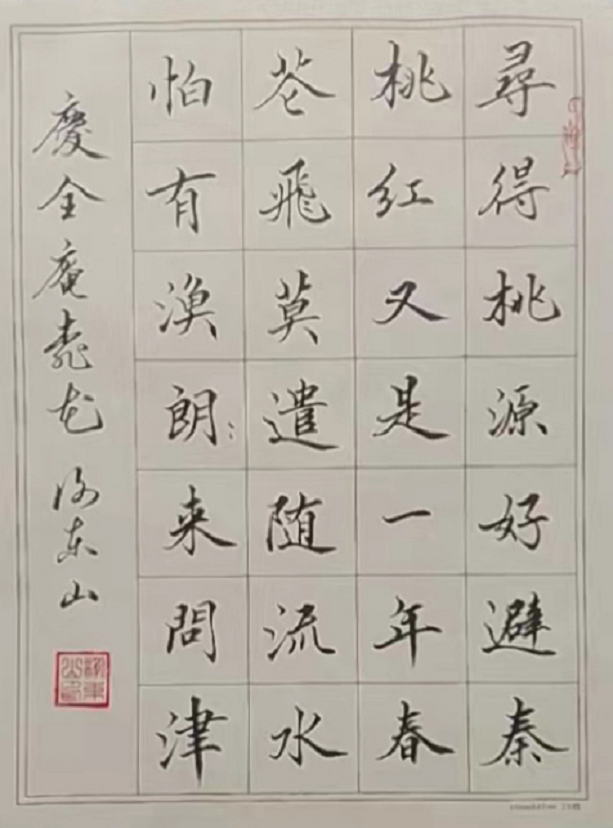 尋得桃源好避秦
桃红又是一年春
花飛莫遣随流水
怕有渙朗来問津
慶全庵桃花 东山